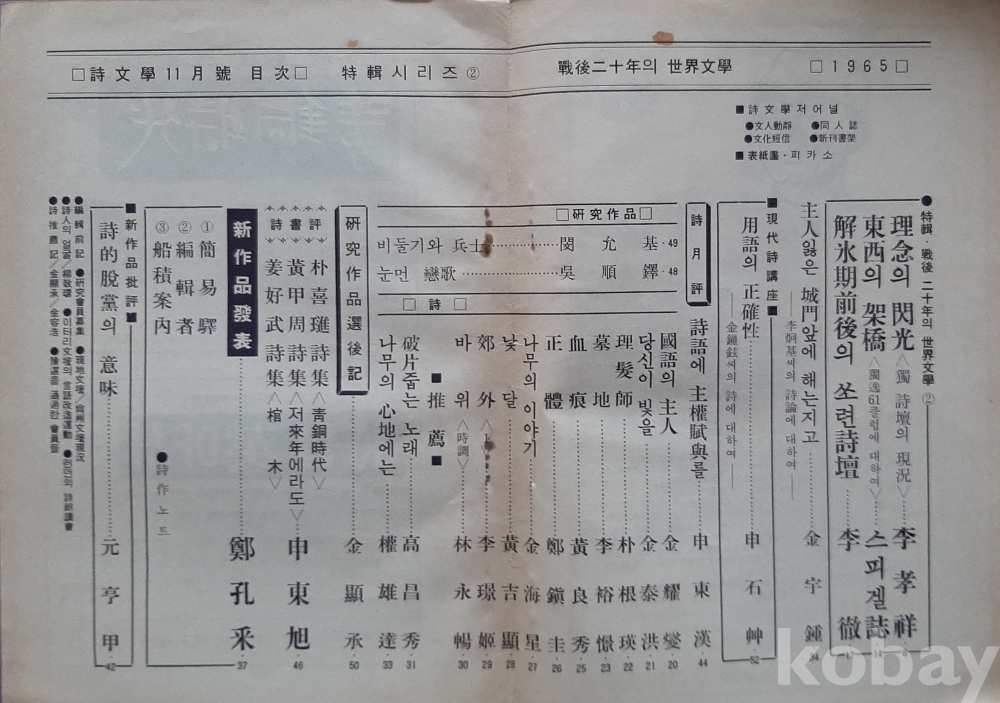 □詩文學11月號 目次□ 特輯시리즈② 戰後二十年의 世界文學 □1965□
■詩文學저어널
●文人動靜 ●同人誌
●文化短信 ●新刊書架
■表紙畫·피카소
●特輯·戰後 二十年의 世界文學②
理念의 閃光〈獨 詩壇의 現況〉 李孝祥
東西의 架橋〈獨逸61클럽에 대하여〉 스피겔誌·14
解氷期前後의 쏘련詩壇 李徹
主人잃은 城門앞에 해는지고 金宇鍾·34
——李炯基씨의 詩論에 대하여——
■現代詩講座■
用語의 正確性 申石艸·52
——金鍾鉉씨의 詩에 대하여——
詩月評
詩語에 主權賦與를 申東漢·44
□硏究作品□
비둘기와 兵士 閔允基·49
눈먼 戀歌 吳順鐸·48
□詩□
國語의 主人 金耀燮·20
당신이 빛을 金泰洪·21
理髮師 朴根瑛·22
墓地 李裕憬·23
血痕 黃良秀·25
正體 鄭鎭圭·26
나무의 이야기 金海星·27
낮달 黃吉顯·28
郊外〈上〉 李璟姬·29
바위〈時調〉 林永暢·30
■推薦■
破片줍는 노래 高昌秀·31
나무의 心地에는 權雄達·33
硏究作品選後記 金顯承·50
評 朴喜璡 詩集〈靑銅時代〉
書 黃甲周 詩集〈저來年에라도〉 申東旭·46
詩 姜好武 詩集〈棺 木〉
新作品發表 鄭孔采·37
①簡易驛
②編輯者
③船積案內
●詩作노트
■新作品批評■
詩的脫黨의 意味 元亨甲·42
●編輯前記 ●硏究會員募集 ●現地文壇/尙州文壇現況
●詩人의 얼굴/柳致環 ●이태리文壇의 言語改造運動 ●런던의 詩朗讀會
●詩推薦記/金顯承/金容浩 ●推薦을 通過한 會員들
kobay